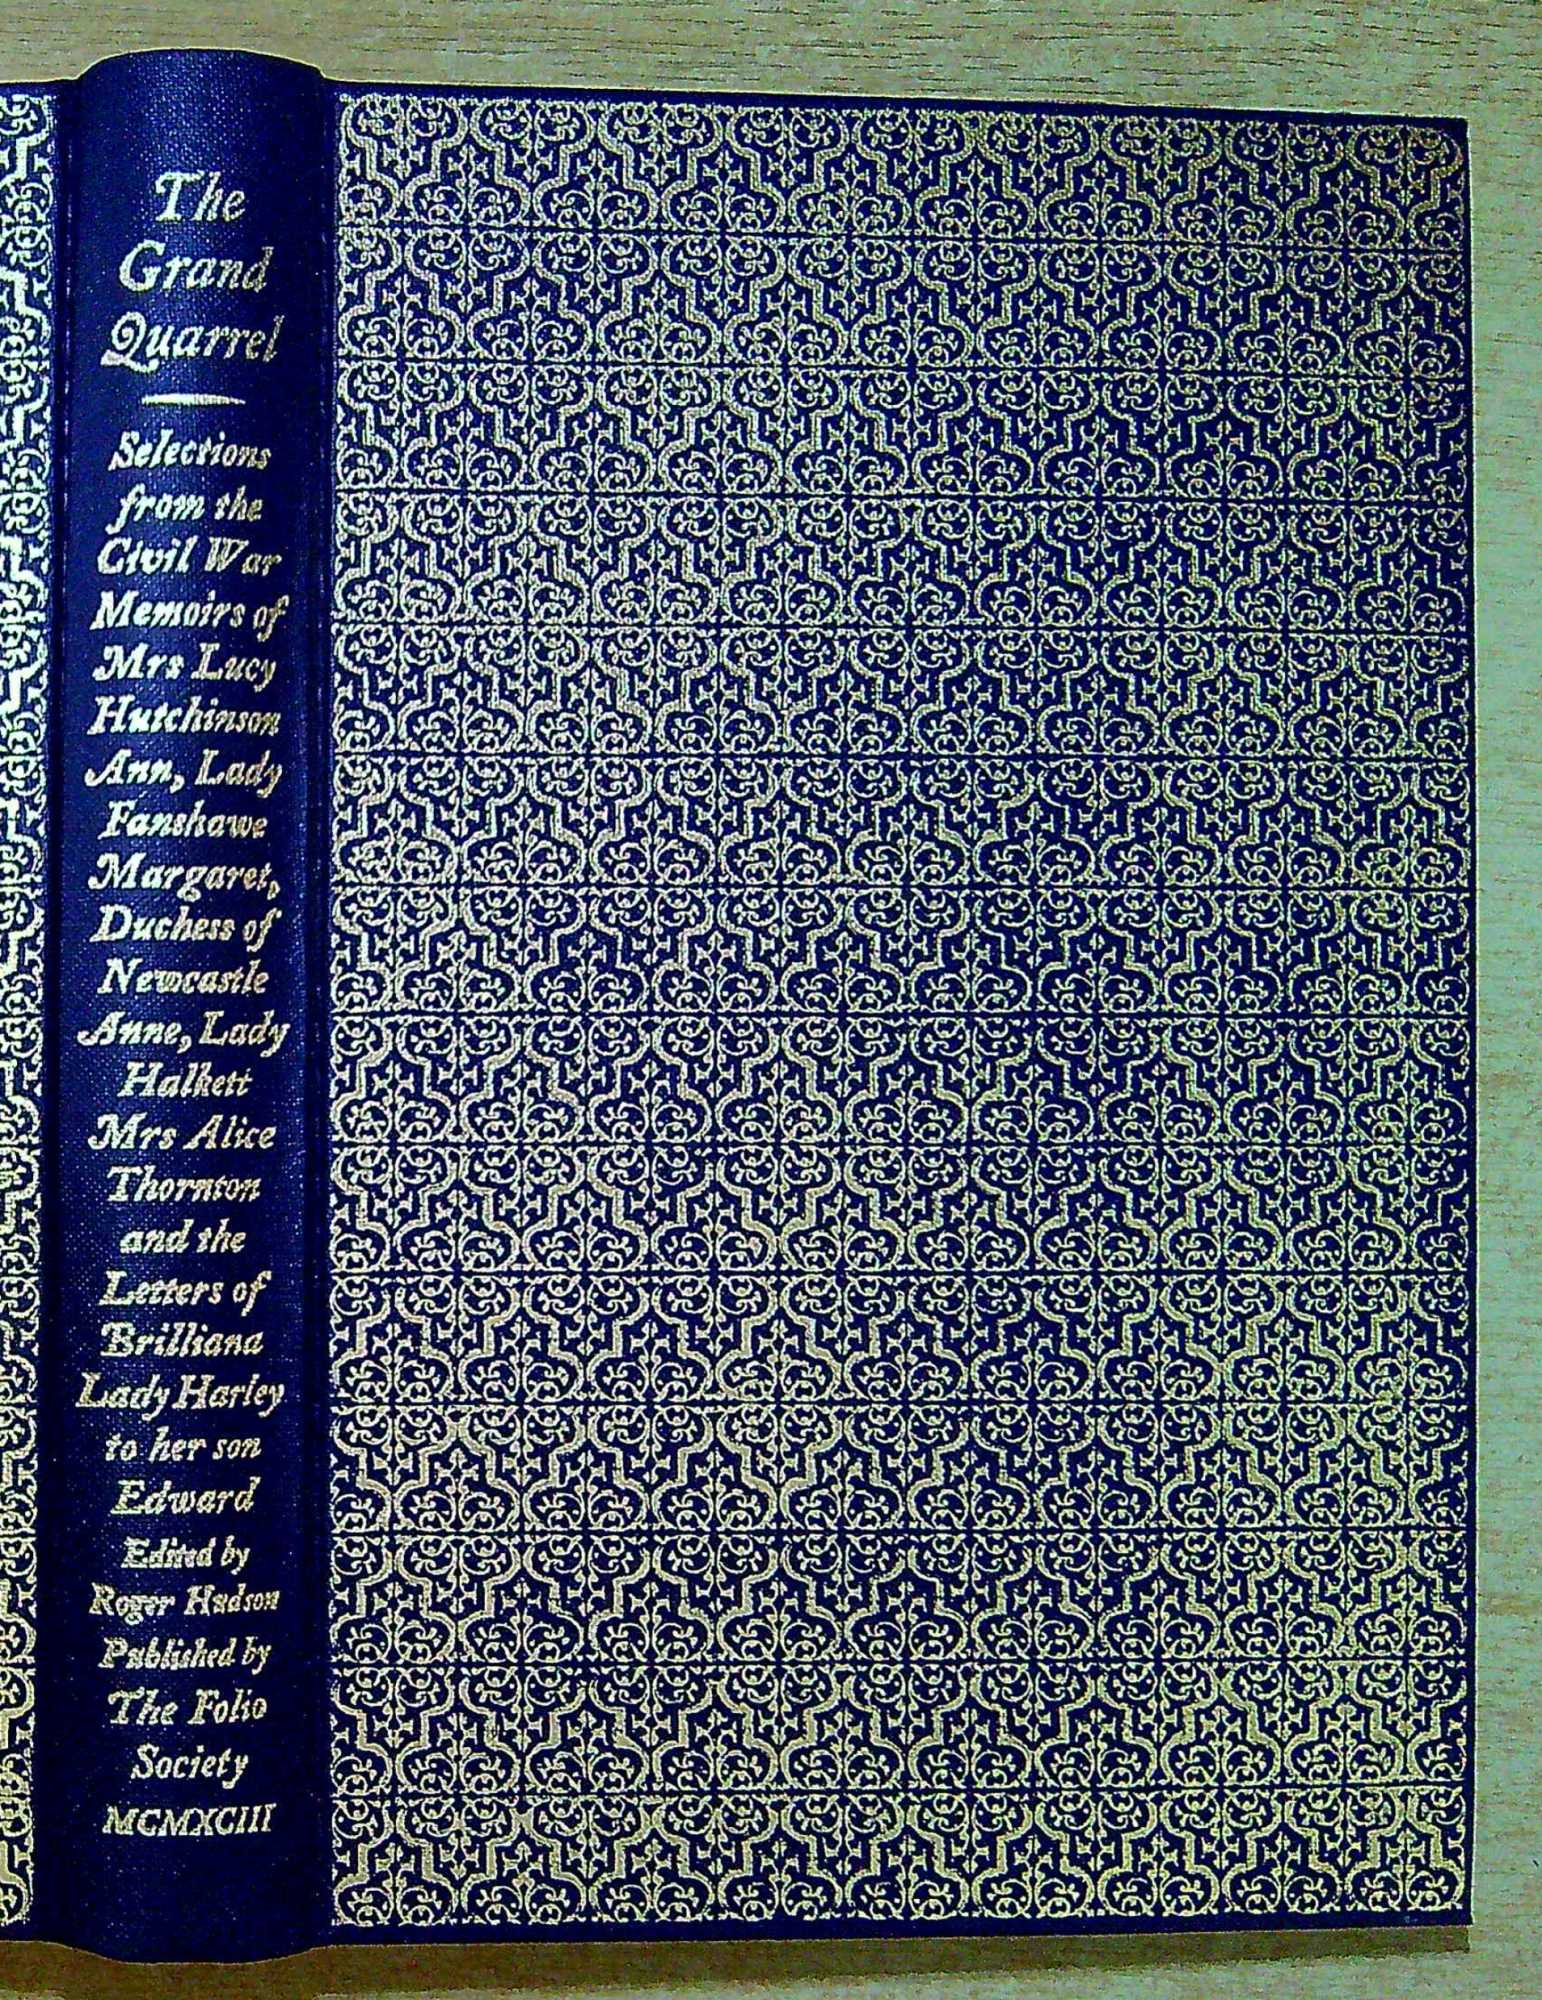 The
Grand
Quarrel
Selections
from the
Civil War
Memoirs of
Mrs Lucy
Hutchinson
Ann, Lady
Fanshawe
Margaret,
Duchess of
Newcastle
Anne, Lady
Halkett
Mrs Alice
Thornton
and the
Letters of
Brilliana
Lady Harley
to her son
Edward
Edited by
Roger Hudson
Published by
The Folio
Society
MCMXCIII